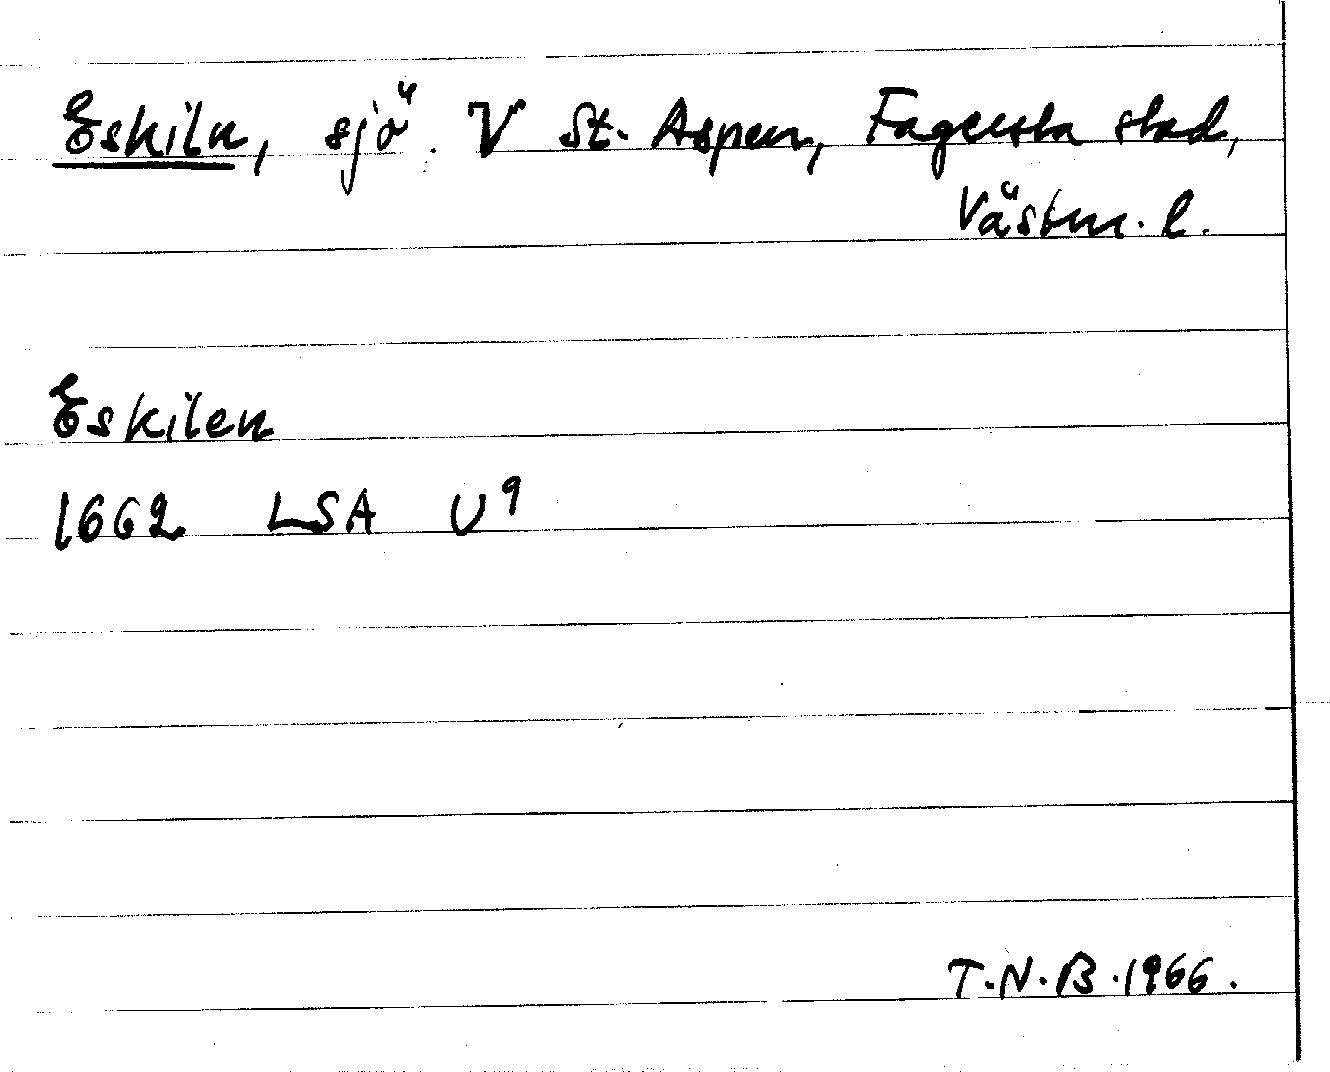 Eskiln, sjö. V St. Aspen, Fagersta stad,
Västm. l.
Eskilen
1662 LSA U⁹
T.N.B. 1966.